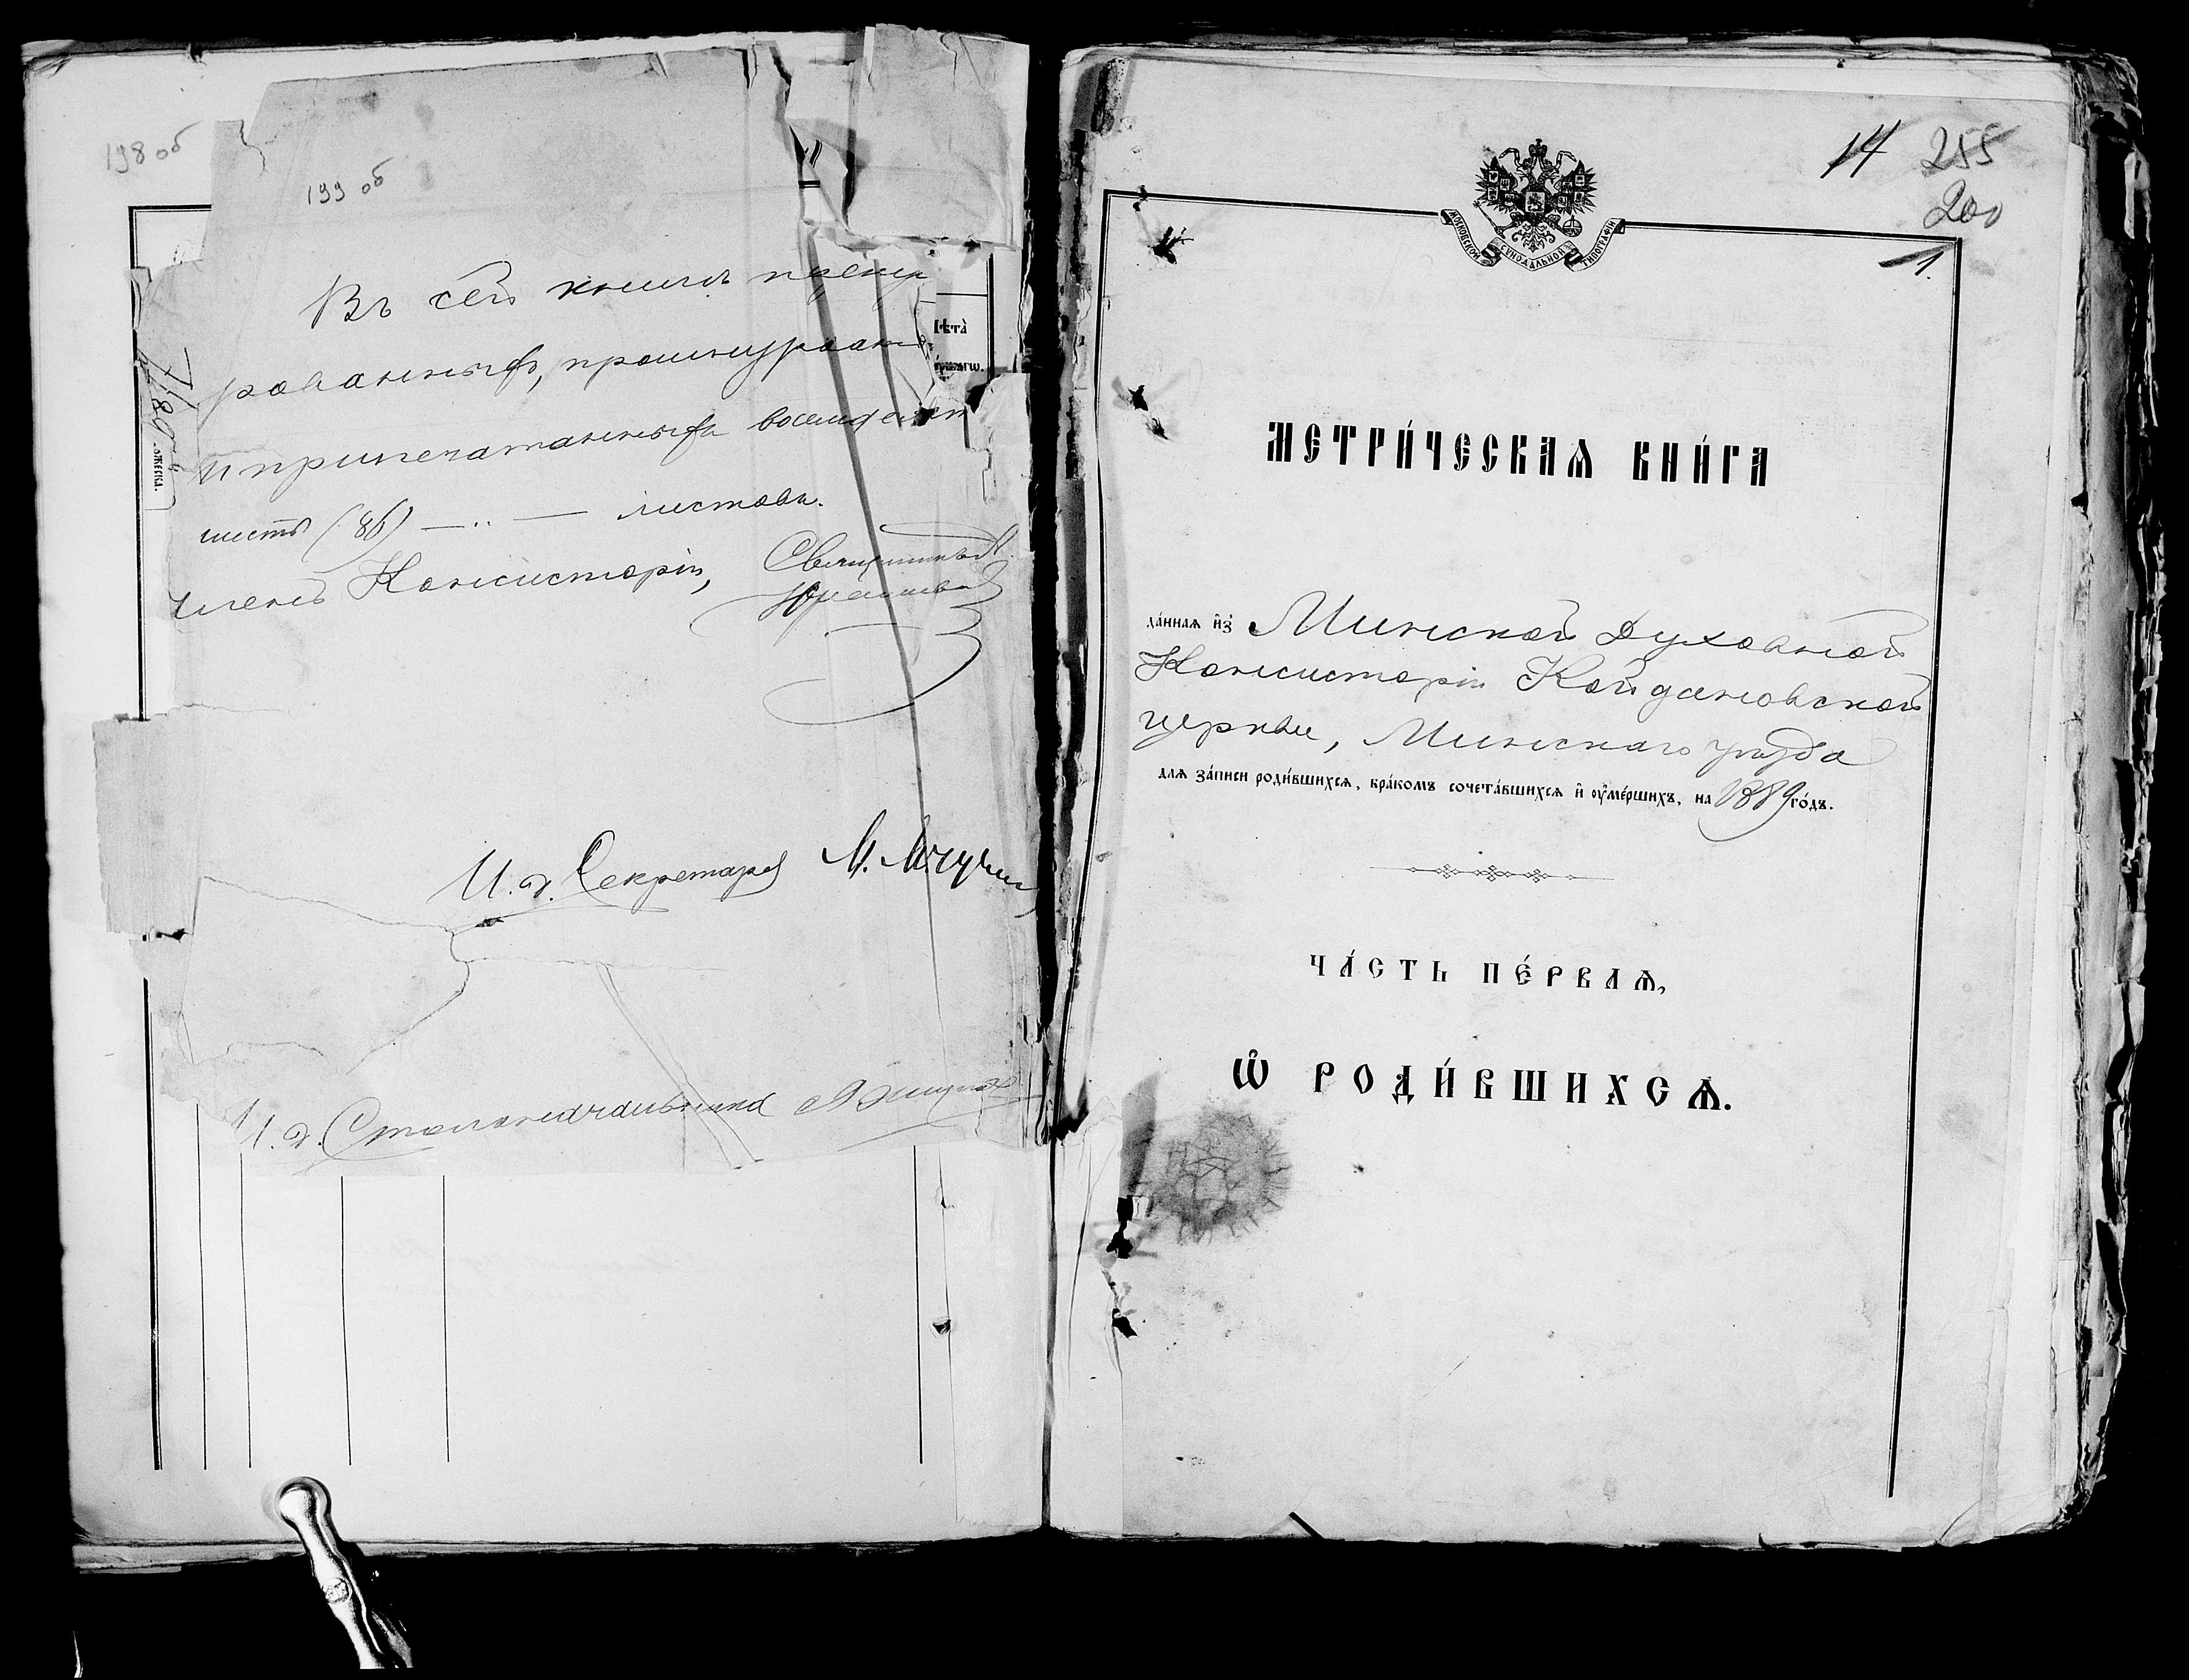 198 об
199 об
Въ сей книгѣ
рованныхъ, прошнурован
и припечатанныхъ восемдесят
шесть (86) — " — листовъ.
Членъ Консисторіи, Священникъ
И. д. Секретаря М.
И. д. Столоначальника
лѣта
ꙋмершагѡ.
женска.
14 255
200
1.
МОСКОВСКОЙ СѴНОДАЛЬНОЙ ТИПОГРАФІИ
МЕТРИ́ЧЕСКАѦ КНИ́ГА
да́ннаѧ и҆зъ Минской Духовной
Консисторіи Койдановской
церкви, Минскаго уѣзда
длѧ за́писи роди́вшихсѧ, бра́комъ сочета́вшихсѧ и҆ ᲂу҆ме́ршихъ, на 1889 го́дъ.
ЧА́СТЬ ПЕ́РВАѦ,
Ѡ҆ РОДИ́ВШИХСѦ.